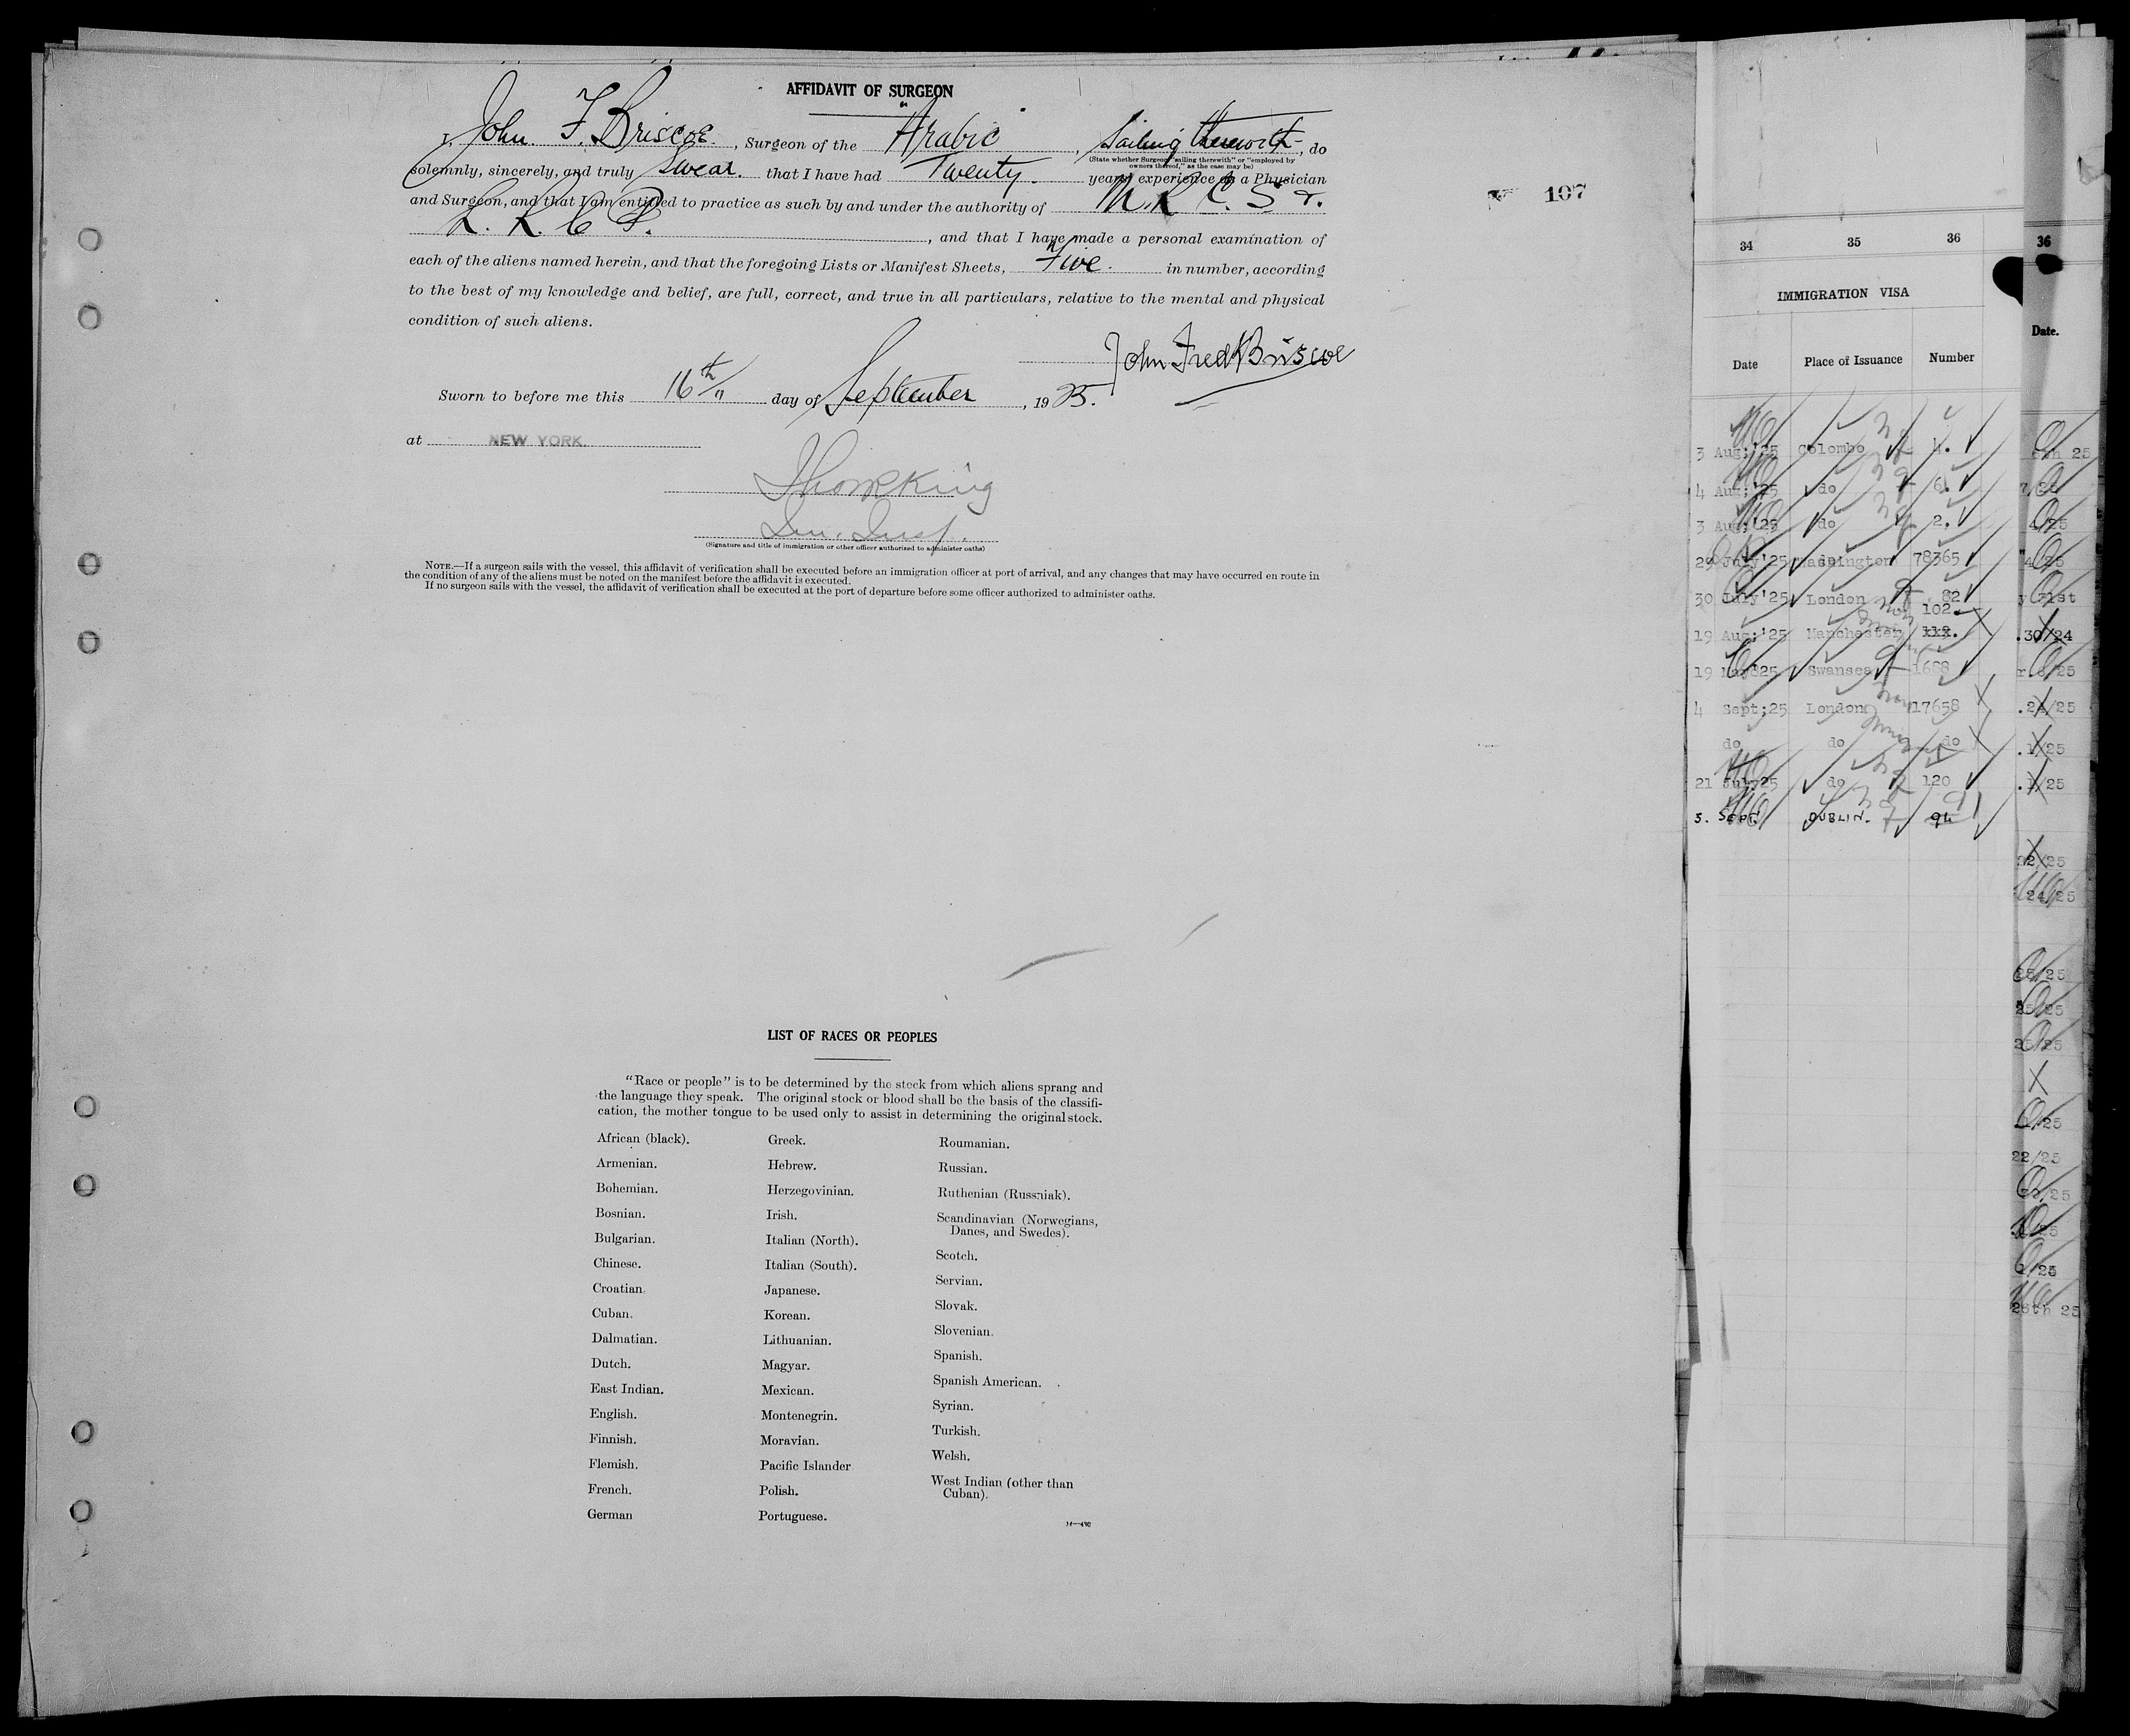 AFFIDAVIT OF SURGEON
I, John F. Briscoe, Surgeon of the "Arabic", Sailing therewith, do
(State whether Surgeon "sailing therewith" or "employed by
owners thereof," as the case may be)
solemnly, sincerely, and truly Swear. that I have had Twenty. years' experience as a Physician
and Surgeon, and that I am entitled to practice as such by and under the authority of M.R.C.S &.
L.R.C.P., and that I have made a personal examination of
each of the aliens named herein, and that the foregoing Lists or Manifest Sheets, Five. in number, according
to the best of my knowledge and belief, are full, correct, and true in all particulars, relative to the mental and physical
condition of such aliens.
John Fredk Briscoe
Sworn to before me this 16th day of September, 1925.
at NEW YORK
Imm. Insp.
(Signature and title of immigration or other officer authorized to administer oaths)
NOTE.—If a surgeon sails with the vessel, this affidavit of verification shall be executed before an immigration officer at port of arrival, and any changes that may have occurred en route in
the condition of any of the aliens must be noted on the manifest before the affidavit is executed.
If no surgeon sails with the vessel, the affidavit of verification shall be executed at the port of departure before some officer authorized to administer oaths.
107
LIST OF RACES OR PEOPLES
"Race or people" is to be determined by the stock from which aliens sprang and
the language they speak. The original stock or blood shall be the basis of the classifi-
cation, the mother tongue to be used only to assist in determining the original stock.
African (black).
Armenian.
Bohemian.
Bosnian.
Bulgarian.
Chinese.
Croatian.
Cuban.
Dalmatian.
Dutch.
East Indian.
English.
Finnish.
Flemish.
French.
German
Greek.
Hebrew.
Herzegovinian.
Irish.
Italian (North).
Italian (South).
Japanese.
Korean.
Lithuanian.
Magyar.
Mexican.
Montenegrin.
Moravian.
Pacific Islander
Polish.
Portuguese.
Roumanian.
Russian.
Ruthenian (Russniak).
Scandinavian (Norwegians,
Danes, and Swedes).
Scotch.
Servian.
Slovak.
Slovenian.
Spanish.
Spanish American.
Syrian.
Turkish.
Welsh.
West Indian (other than
Cuban).
14—490
34 35 36
IMMIGRATION VISA
Date Place of Issuance Number
3 Aug;'25 Colombo 4.
4 Aug;'25 do 6.
3 Aug;'25 do 2.
29 July'25 Washington 78365
30 July'25 London 82
102.
19 Aug;'25 Manchester xxx.
19 May825 Swansea 1688
4 Sept;25 London 17658
do do do
21 July25 do 120
3. SEPT. DUBLIN. 94
36
Date.
4/25
.30/24
.24/25
.1/25
.1/25
24/25
22/25
26th 25